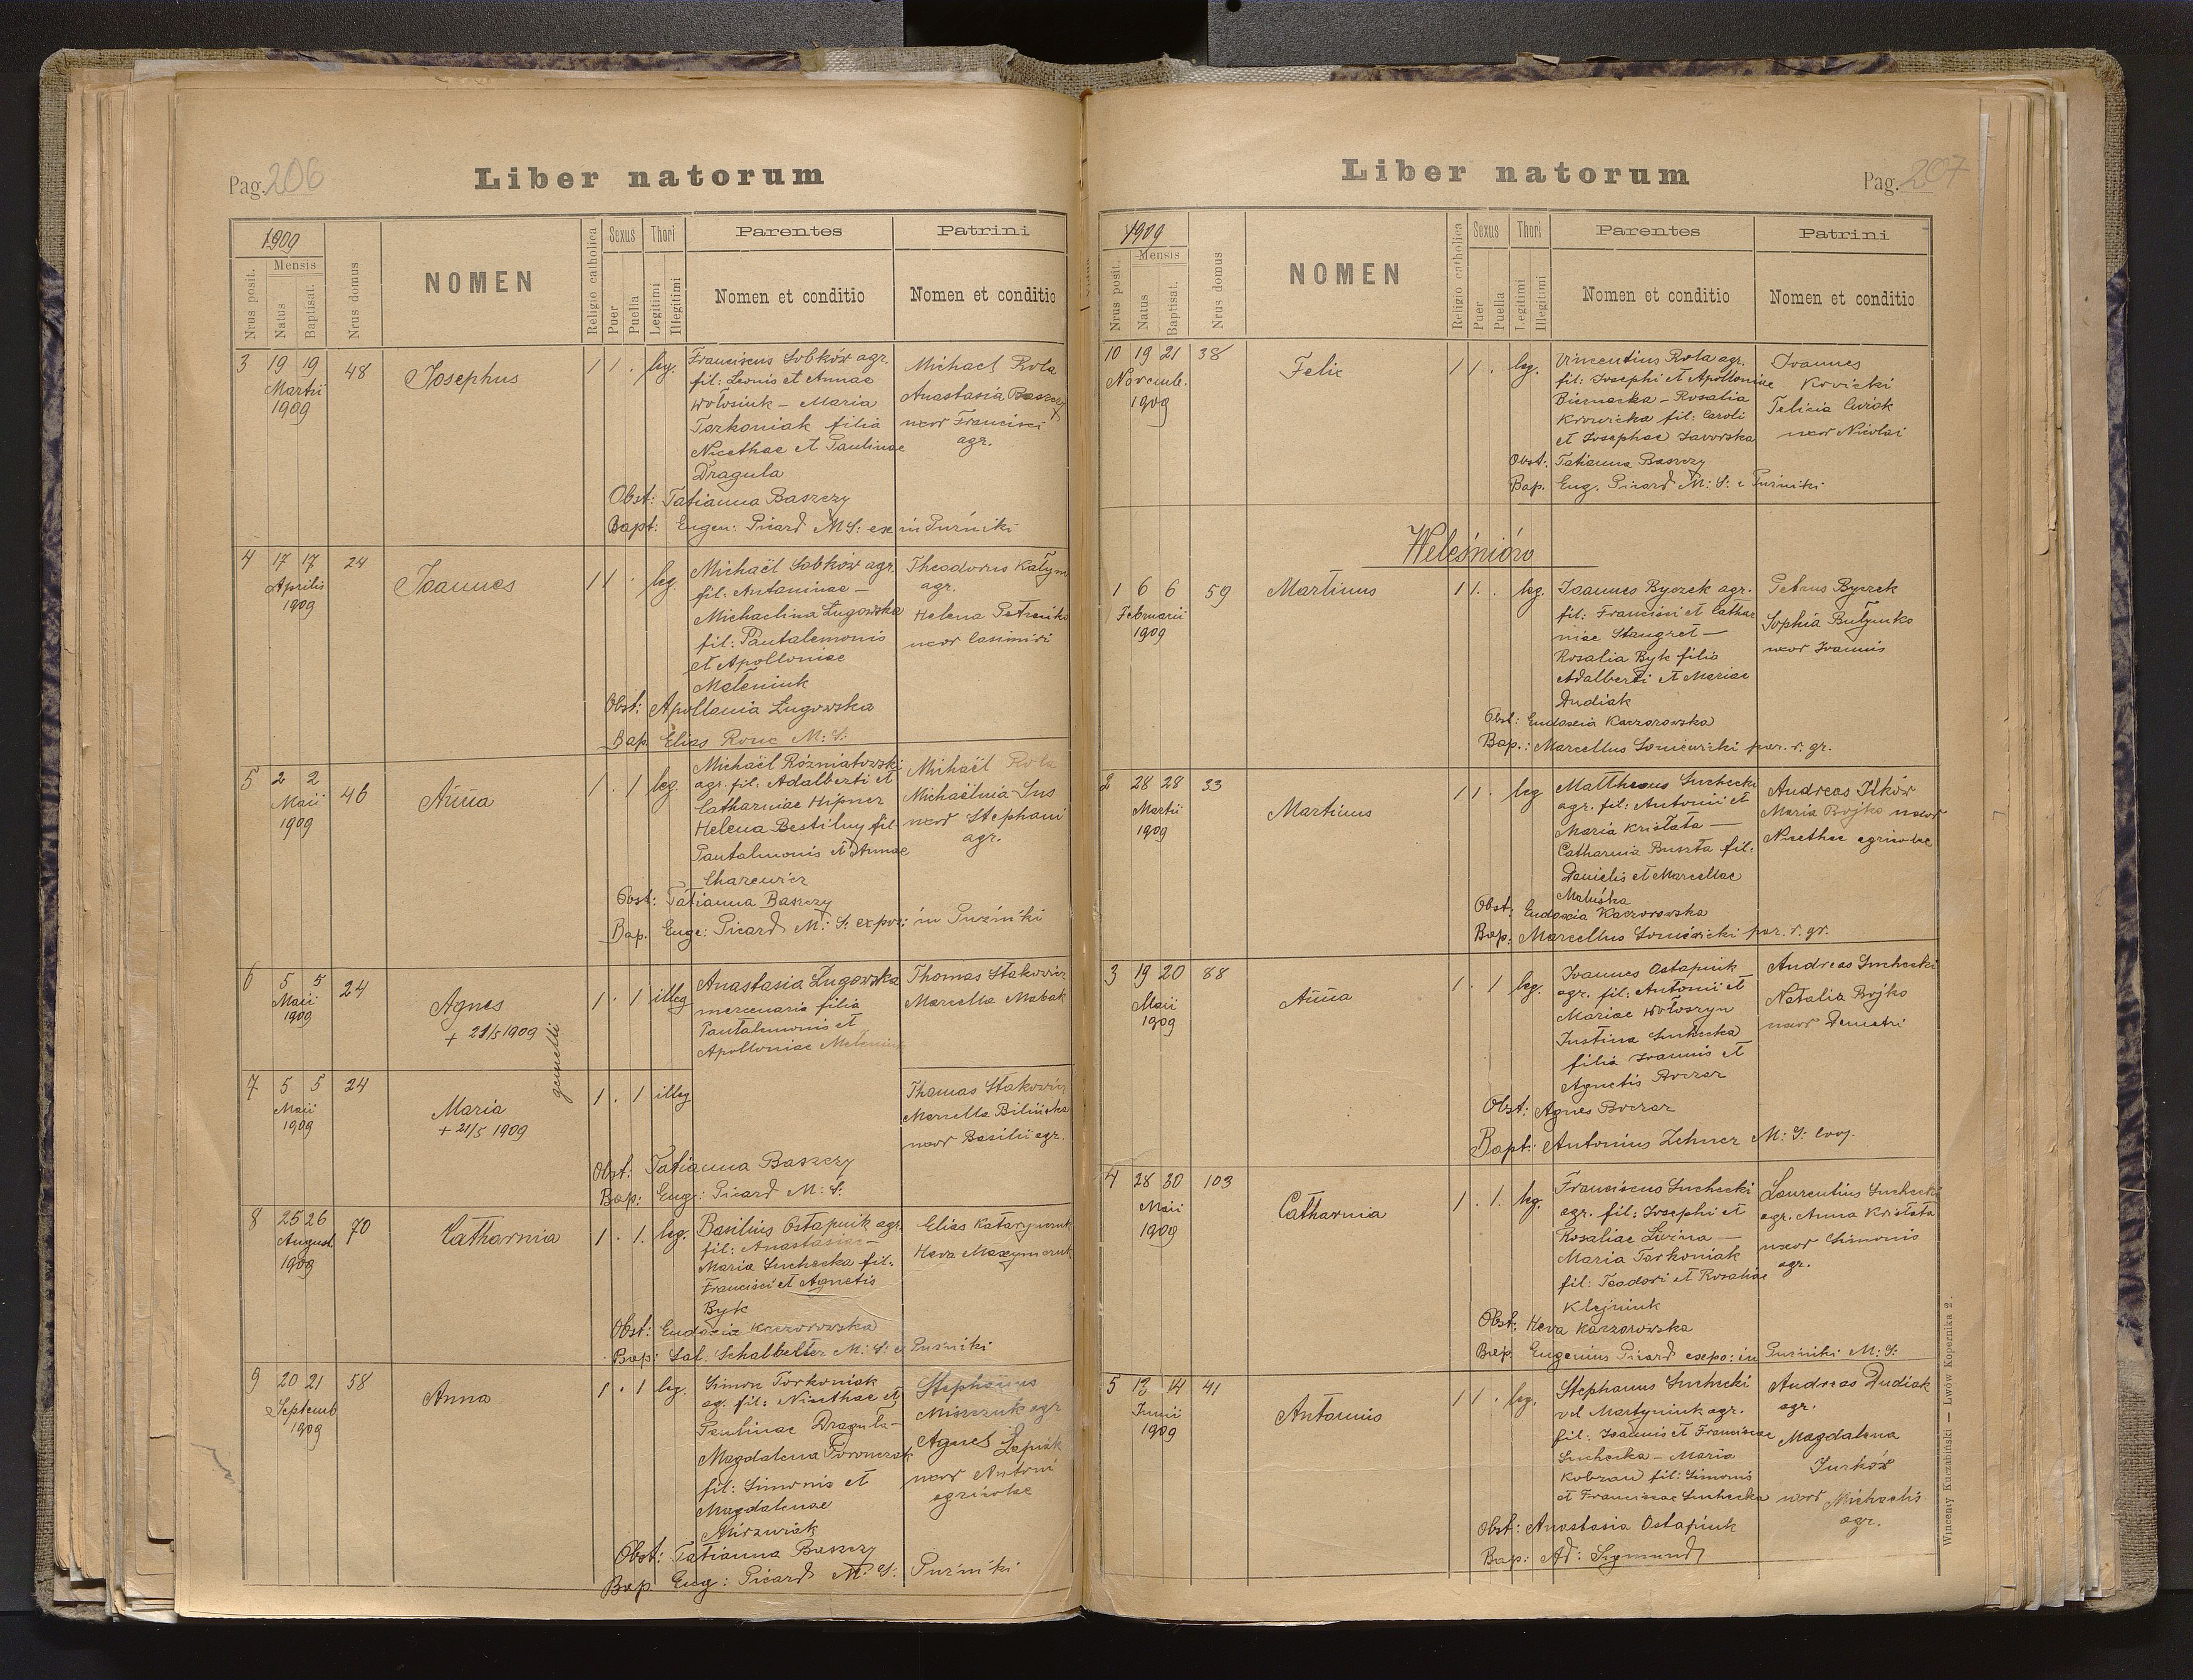 Pag. 206
Liber natorum
1909
Nrus posit.
Mensis
Natus
Baptisat.
Nrus domus
NOMEN
Religio catholica
Sexus
Puer
Puella
Thori
Legitimi
Illegitimi
Parentes
Nomen et conditio
Patrini
Nomen et conditio
3 19 19 48 Josephus 1 1 . leg.
Martii
1909
Franciscus Sobków agr.
fil: Leonis et Annae
Wołosiuk – Maria
Tarkoniak filia
Nicethae et Paulinae
Dragula
Michael Rola
Anastasia Baszczy
uxor Francisci
agr.
Obst: Tatianna Baszczy
Bapt: Eugen: Picard M S: ex in Puźniki
4 17 17 24 Joannes 1 1 . leg.
Aprilis
1909
Michaël Sobków agr.
fil: Antoninae –
Michaelina Ługowska
fil: Pantalemonis
et Apolloniae
Meleniuk
Theodorus Katyn
agr.
Helena Petrenko
uxor Casimiri
Obst: Apollonia Ługowska
Bap Elias Rouc M: S:
5 2 2 46 Anna 1 . 1 leg.
Maii
1909
Michaël Rożniatowski
agr. fil: Adalberti et
Catharinae Hipner
Helena Bestilny fil
Pantalemonis et Annae
Charewicz
Michaël Rola
Michaëlina Sus
uxor Stephani
agr.
Obst: Tatianna Baszczy
Bap. Euge: Picard M: S: expos: in Puźniki
6 5 5 24 Agnes 1 . 1 illeg
Maii
1909
+ 21/5 1909
gemelli
Anastasia Ługowska
mercenaria filia
Pantalemonis et
Apolloniae Meleniuk
Thomas Stakowicz
Marcella Mabak
7 5 5 24 Maria 1 . 1 illeg
Maii
1909
+ 21/5 1909
Thomas Stakowicz
Marcella Bilińska
uxor Basilii agr.
Obst: Tatianna Baszczy
Bap: Eug: Picard M: S:
8 25 26 70 Catharina 1 . 1. leg.
August
1909
Basilius Ostapiuk agr.
fil: Anastasiae –
Maria Suchecka fil.
Francisci et Agnetis
Byk
Elias Katarynczuk
Heva Maxymczuk
Obst: Eudoxia Kaczorowska
Bap: Sal. Schalbetter M: S: e Puźniki
9 20 21 58 Anna 1 . 1 leg.
Septemb
1909
Simon Torkoniak
ag. fil: Nicethae et
Paulinae Dragula –
Magdalena Woronczak
fil: Simonis et
Magdalenae
Mirzwiak
Stephanus
Miszczuk agr
Agnes Łapiak
uxor Antoni
agricolae
Obst: Tatianna Baszczy
Bap Eug: Picard M: S: Puźniki
Liber natorum
Pag. 207
1909
Nrus posit.
Mensis
Natus
Baptisat.
Nrus domus
NOMEN
Religio catholica
Sexus
Puer
Puella
Thori
Legitimi
Illegitimi
Parentes
Nomen et conditio
Patrini
Nomen et conditio
10 19 21 38 Felix 1 1 . leg.
Novemb.
1909
Vincentius Rola agr.
fil: Josephi et Apolloniae
Biernacka – Rosalia
Krowicka fil: Caroli
et Josephae Jaworska
Joannes
Krwicki
Felicia Cwiok
uxor Nicolai
Obst: Tatianna Baszczy
Bap. Eug. Picard M: S: e Puźniki
Weleśniów
1 6 6 59 Martinus 1 1 . leg.
Februarii
1909
Joannes Byczek agr.
fil: Francisci et Catha-
rinae Staugret –
Rosalia Byk filia
Adalberti et Mariae
Dudiak
Petrus Byczek
Sophia Butynko
uxor Joannis
Obst: Eudoxia Kaczorowska
Bap.: Marcellus Soniewicki par. r. gr.
2 28 28 33 Martinus 1 1 . leg
Martii
1909
Mattheus Suchecki
agr. fil: Antonii et
Maria Kristata –
Catharina Buszta fil:
Danielis et Marcellae
Maluśka
Andreas Ilków
Maria Bojko uxor
Nicethae agricolae
Obst: Eudoxia Kaczorowska
Bap: Marcellus Soniewicki par. r. gr.
3 19 20 88 Anna 1 . 1 leg.
Maii
1909
Joannes Ostapiuk
agr. fil: Antonii et
Mariae Wołoszyn
Justina Suchecka
filia Joannis et
Agnetis Boczar
Andreas Suchecki
Natalia Bojko
uxor Demetri
Obst: Agnes Boczar
Bapt: Antonius Zehner M: S: Coop.
4 28 30 103 Catharina 1 . 1. leg.
Maii
1909
Franciscus Suchecki
agr. fil: Josephi et
Rosaliae Żwina –
Maria Tarkoniak
fil: Teodori et Rosaliae
Klejniuk
Laurentius Suchecki
agr. Anna Kristata
uxor Simonis
agr.
Obst: Heva Kaczorowska
Bap Eugenius Picard expo: in Puźniki M: S:
5 12 14 41 Antonius 1 1 . leg.
Junii
1909
Stephanus Suchecki
vel Martyniuk agr.
fil: Joannis et Franciscae
Suchecka – Maria
Kobzan fil: Simonis
et Franciscae Suchecka
Andreas Dudiak
agr.
Magdalena
Jurków
uxor Michaelis
agr.
Obst: Anastasia Ostapiuk
Bap: Ad: Sigmund
Wincenty Kuczabiński — Lwów Kopernika 2.